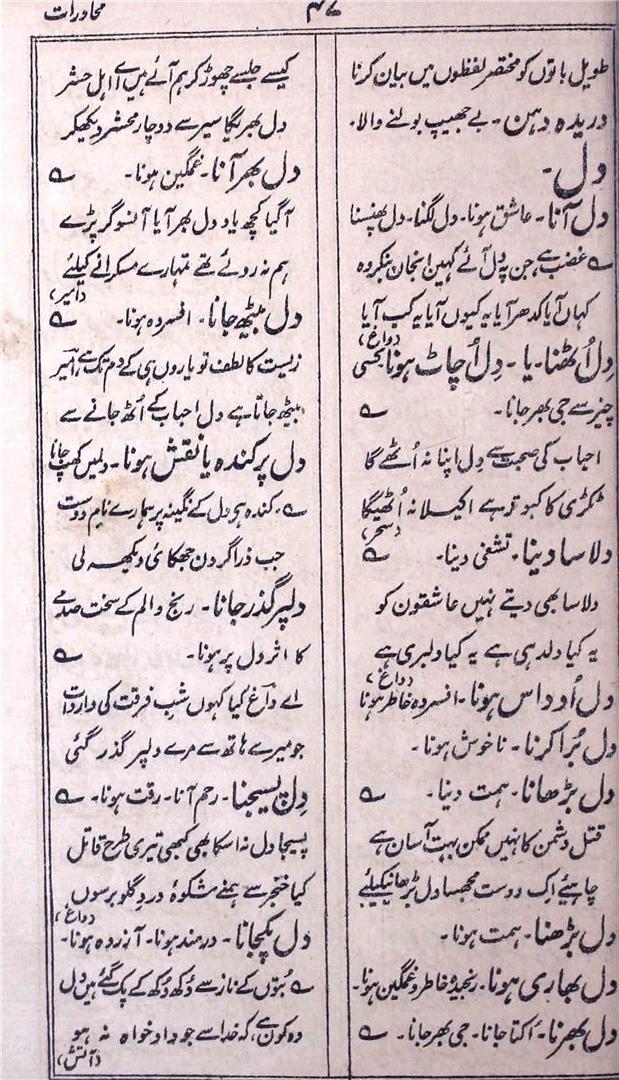 ۴۷
محاورات
طویل باتوں کو مختصر لفظوں میں بیان کرنا
دریدہ دہن۔ بے جھیپ بولنے والا۔
دل۔
دل آنا۔ عاشق ہونا۔ دل لگنا۔ دل پھنسنا
؎ غضب ہے، جن پہ دل آئے کہیں انجان بنکر وہ
کہاں آیا کدھر آیا یہ کیوں آیا یہ کب آیا
(داغ)
دِل اُٹھنا۔ یا۔ دِل اُچاٹ ہونا کسی
چیز سے جی بھر جانا۔ ؎
احباب کی صحبت سے دِل اپنا نہ اُٹھے گا
ٹکڑی کا کبوتر ہے اکیلا نہ اُٹھیگا
(سحر)
دلاسا دینا۔ تشفی دینا۔ ؎
دلاسا بھی دیتے نہیں عاشقون کو
یہ کیا دلدہی ہے یہ کیا دلبری ہے
(داغ)
دل اُوداس ہونا۔ افسردہ خاطر ہونا
دل بُرا کرنا۔ ناخوش ہونا۔
دل بڑھانا۔ ہمت دینا۔ ؎
قتل دشمن کا نہیں ممکن بہت آسان ہے
چاہئیے اک دوست مجھسا دل بڑھانیکیلئے
دل بڑھنا۔ ہمت ہونا۔
دل بھاری ہونا۔ رنجیدہ خاطر و غمگین ہونا۔
دل بھرنا۔ اُکتا جانا۔ جی بھر جانا۔ ؎
کیسے جلسے چھوڑ کر ہم آئے ہیں اے اہل حشر
دل بھر گیا سیر سے دو چار محشر دیکھکر
دل بھر آنا۔ غمگین ہونا۔ ؎
آگیا کچھ یاد دل بھر آیا آنسو گر پڑے
ہم نہ روئے تھے تمہارے مسکرانے کیلئے
(امیر)
دل بیٹھ جانا۔ افسردہ ہونا۔ ؎
زیست کا لطف تو یاروں ہی کے دم تک ہے امیر
بیٹھ جاتا ہے دل احباب کے اُٹھ جانے سے
دل پر کندہ یا نقش ہونا۔ دلمیں کھپ جانا
؎ کندہ ہے دل کے نگینہ پر ہمارے نام دوست
جب ذرا گردن جھکائی دیکھ لی
دلپر گذر جانا۔ رنج و الم کے سخت صدمے
کا اثر دل پر ہونا۔ ؎
اے داغ کیا کہوں شبِ فرقت کی واردات
جو میرے ہاتھ سے مرے دلپر گذر گئی
دِل پسیجنا۔ رحم آنا۔ رقت ہونا۔ ؎
پسیجا دل نہ اسکا بھی کبھی تیری طرح قاتل
کیا خنجر سے ہمنے شکوۂ دردِ گلو برسوں
(داغ)
دل پکجانا۔ درمند ہونا۔ آزردہ ہونا۔
؎ بتوں کے ناز سے دُکھ دُکھ کے پک گئے ہیں دل
وہ کون ہے، کہ خدا سے جو داد خواہ نہ ہو
(آتش)